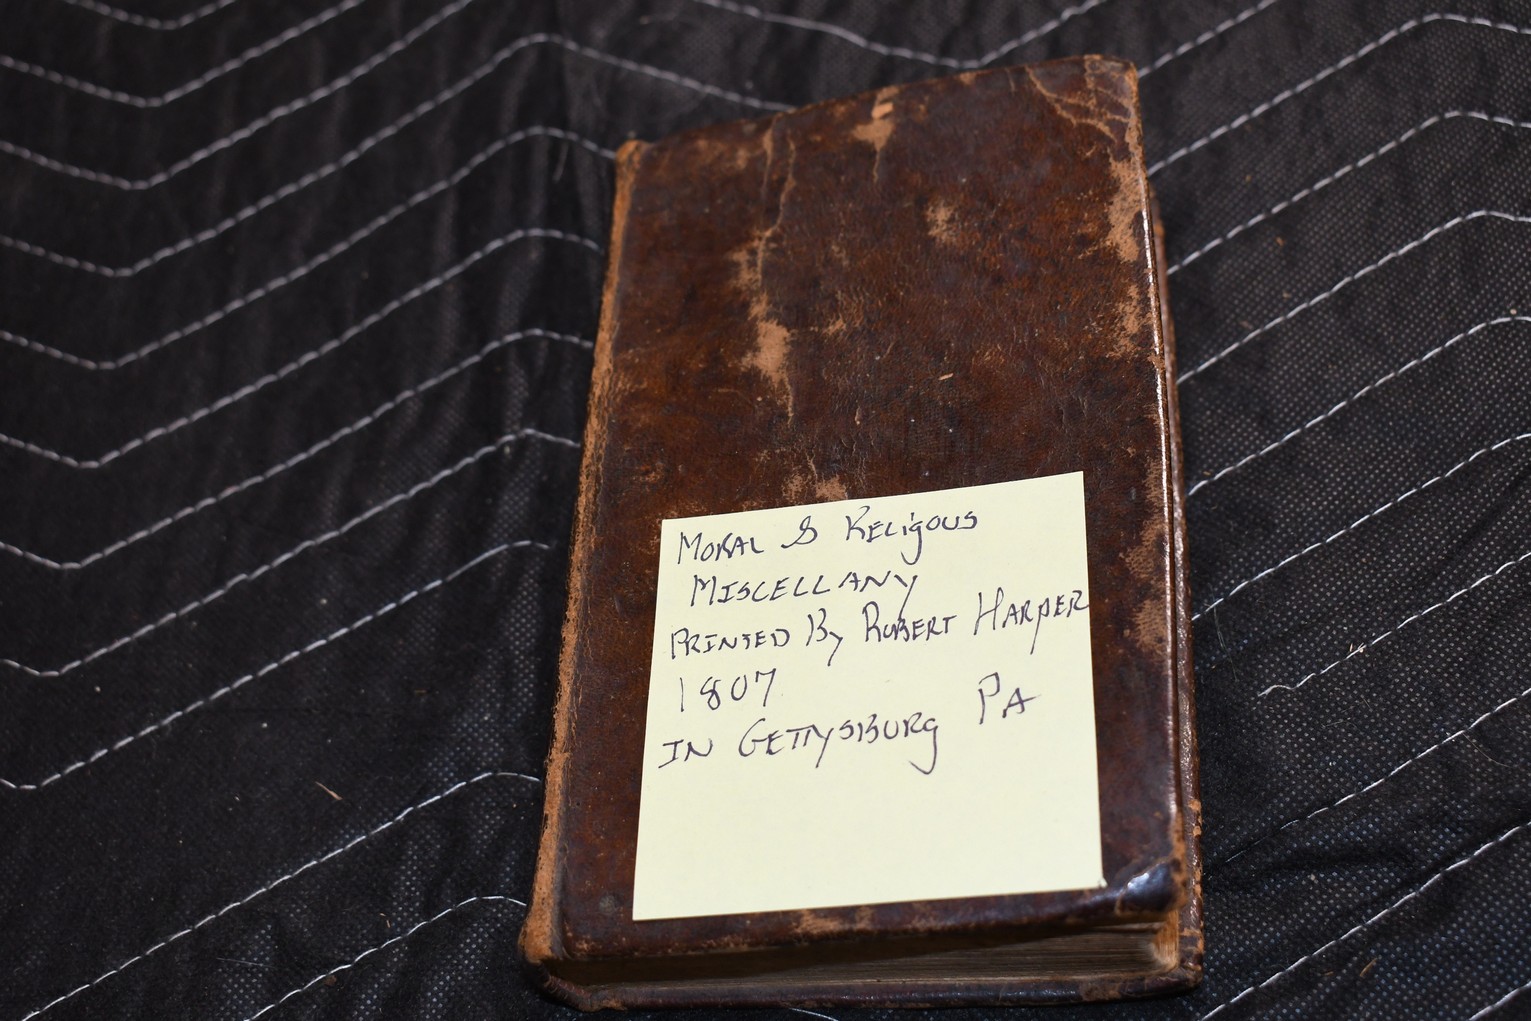 Moral & Religous
Miscellany
Printed By Robert Harper
1807
in Gettysburg PA